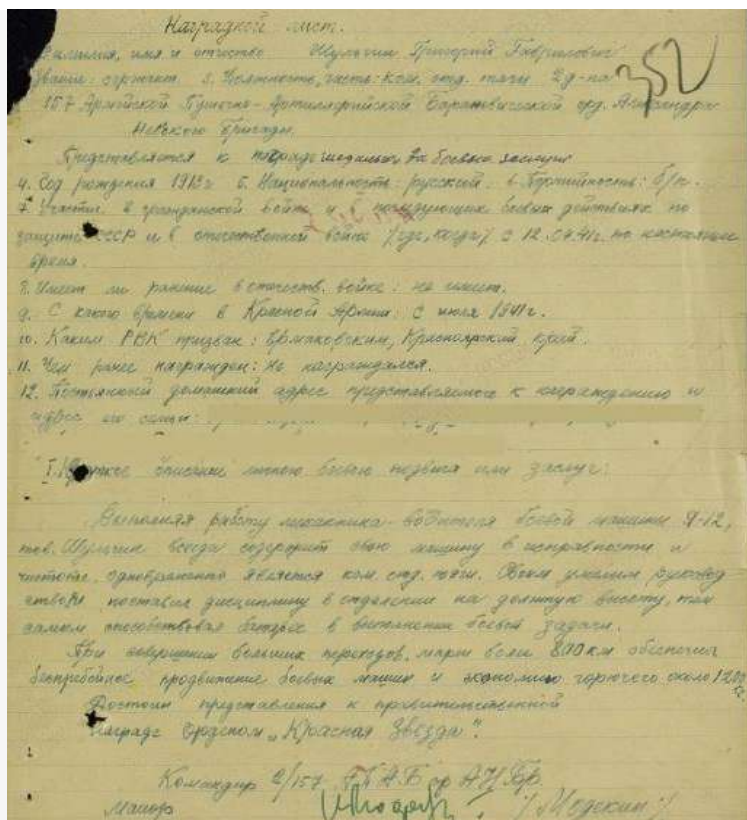 Наградной лист.
Фамилия, имя и отчество Шульгин Григорий Гаврилович
Звание: сержант 3. Должность, часть: ком. отд. тяги 2 д-на
352
157 Армейской Пушечно-Артиллерийской Барановической орд. Александра
Невского бригады.
Представляется к награде медалью За боевые заслуги
4. Год рождения 1913 г 5. Национальность: русский. 6. Партийность: б/п.
7. Участие в гражданской войне и в последующих боевых действиях по
защите СССР и в отечественной войне /где, когда/ с 12.07.41г. по настоящее
время.
8. Имеет ли ранение в отечеств. войне: не имеет.
9. С какого времени в Красной Армии: с июля 1941г.
10. Каким РВК призван: Ермаковским, Красноярский край.
11. Чем ранее награжден: не награждался.
12. Постоянный домашний адрес представляемого к награждению и
адрес его семьи:
I. Краткое описание личного боевого подвига или заслуг:
Выполняя работу механика-водителя боевой машины Я-12,
тов. Шульгин всегда содержит свою машину в исправности и
чистоте, одновременно является ком. отд. тяги. Своим умелым руковод
ством поставил дисциплину в отделении на должную высоту, тем
самым способствовал батарее в выполнении боевой задачи.
При совершении больших переходов, марш более 800 км обеспечил
бесперебойное продвижение боевых машин и экономию горючего около 1200
кг.
Достоин представления к правительственной
награде орденом „Красная Звезда“.
Командир 2/157 АПАБ ор АН Бр
Майор /Модекин/